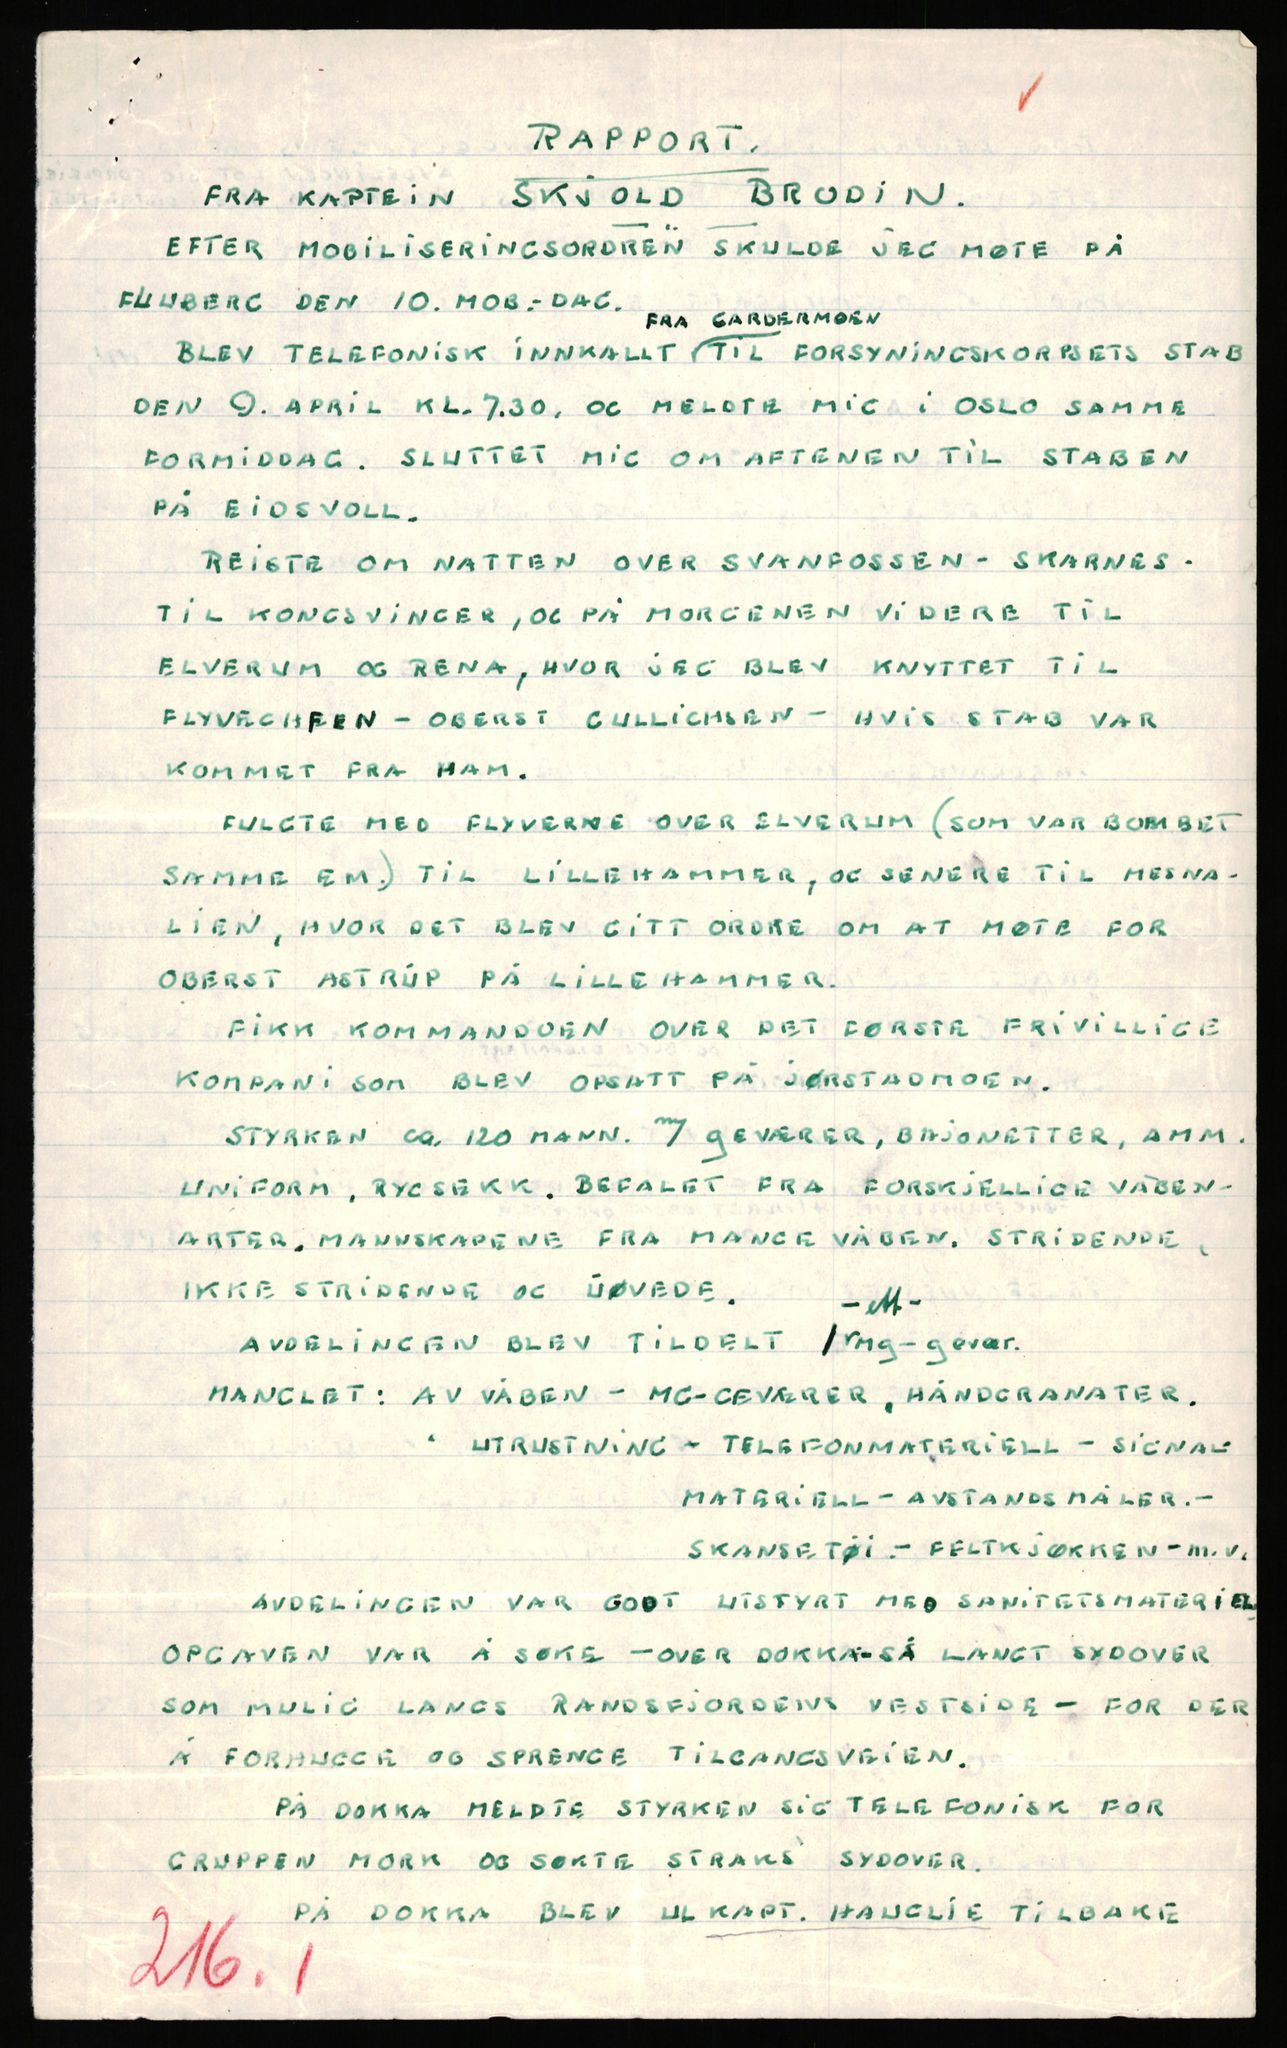 RAPPORT.
FRA KAPTEIN SKJOLD BRODIN.
EFTER MOBILISERINGSORDREN SKULDE JEG MØTE PÅ
FLUBERG DEN 10. MOB.-DAG.
FRA GARDERMOEN
BLEV TELEFONISK INNKALLT TIL FORSYNINGSKORPSETS STAB
DEN 9. APRIL KL. 7.30, OG MELDTE MIG I OSLO SAMME
FORMIDDAG. SLUTTET MIG OM AFTENEN TIL STABEN
PÅ EIDSVOLL.
REISTE OM NATTEN OVER SVANFOSSEN - SKARNES -
TIL KONGSVINGER, OG PÅ MORGENEN VIDERE TIL
ELVERUM OG RENA, HVOR JEG BLEV KNYTTET TIL
FLYVECHEFEN - OBERST GULLICHSEN - HVIS STAB VAR
KOMMET FRA HAM.
FULGTE MED FLYVERNE OVER ELVERUM (SOM VAR BOMBET
SAMME EM.) TIL LILLEHAMMER, OG SENERE TIL MESNA-
LIEN, HVOR DET BLEV GITT ORDRE OM AT MØTE FOR
OBERST ASTRUP PÅ LILLEHAMMER.
FIKK KOMMANDOEN OVER DET FØRSTE FRIVILLIGE
KOMPANI SOM BLEV OPSATT PÅ JØRSTADMOEN.
STYRKEN ca. 120 MANN. m/ gEVÆRER, BAJONETTER, AMM.
UNIFORM, RYGSEKK. BEFALET FRA FORSKJELLIGE VÅBEN-
ARTER. MANNSKAPENE FRA MANGE VÅBEN. STRIDENDE,
IKKE STRIDENDE OG UØVEDE.
- ett -
AVDELINGEN BLEV TILDELT 1 mg-gevær.
MANGLET: AV VÅBEN - MG-GEVÆRER, HÅNDGRANATER.
" UTRUSTNING - TELEFONMATERIELL - SIGNAL-
MATERIELL - AVSTANDSMÅLER.-
SKANSETØI.- FELTKJØKKEN - m.v.
AVDELINGEN VAR GODT UTSTYRT MED SANITETSMATERIEL
OPGAVEN VAR Å SØKE - OVER DOKKA - SÅ LANGT SYDOVER
SOM MULIG LANGS RANDSFJORDENS VESTSIDE - FOR DER
Å FORHUGGE OG SPRENGE TILGANGSVEIEN.
PÅ DOKKA MELDTE STYRKEN SIG TELEFONISK FOR
GRUPPEN MORK OG SØKTE STRAKS SYDOVER.
PÅ DOKKA BLEV KAPT. HAUGLIE TILBAKE
216. 1